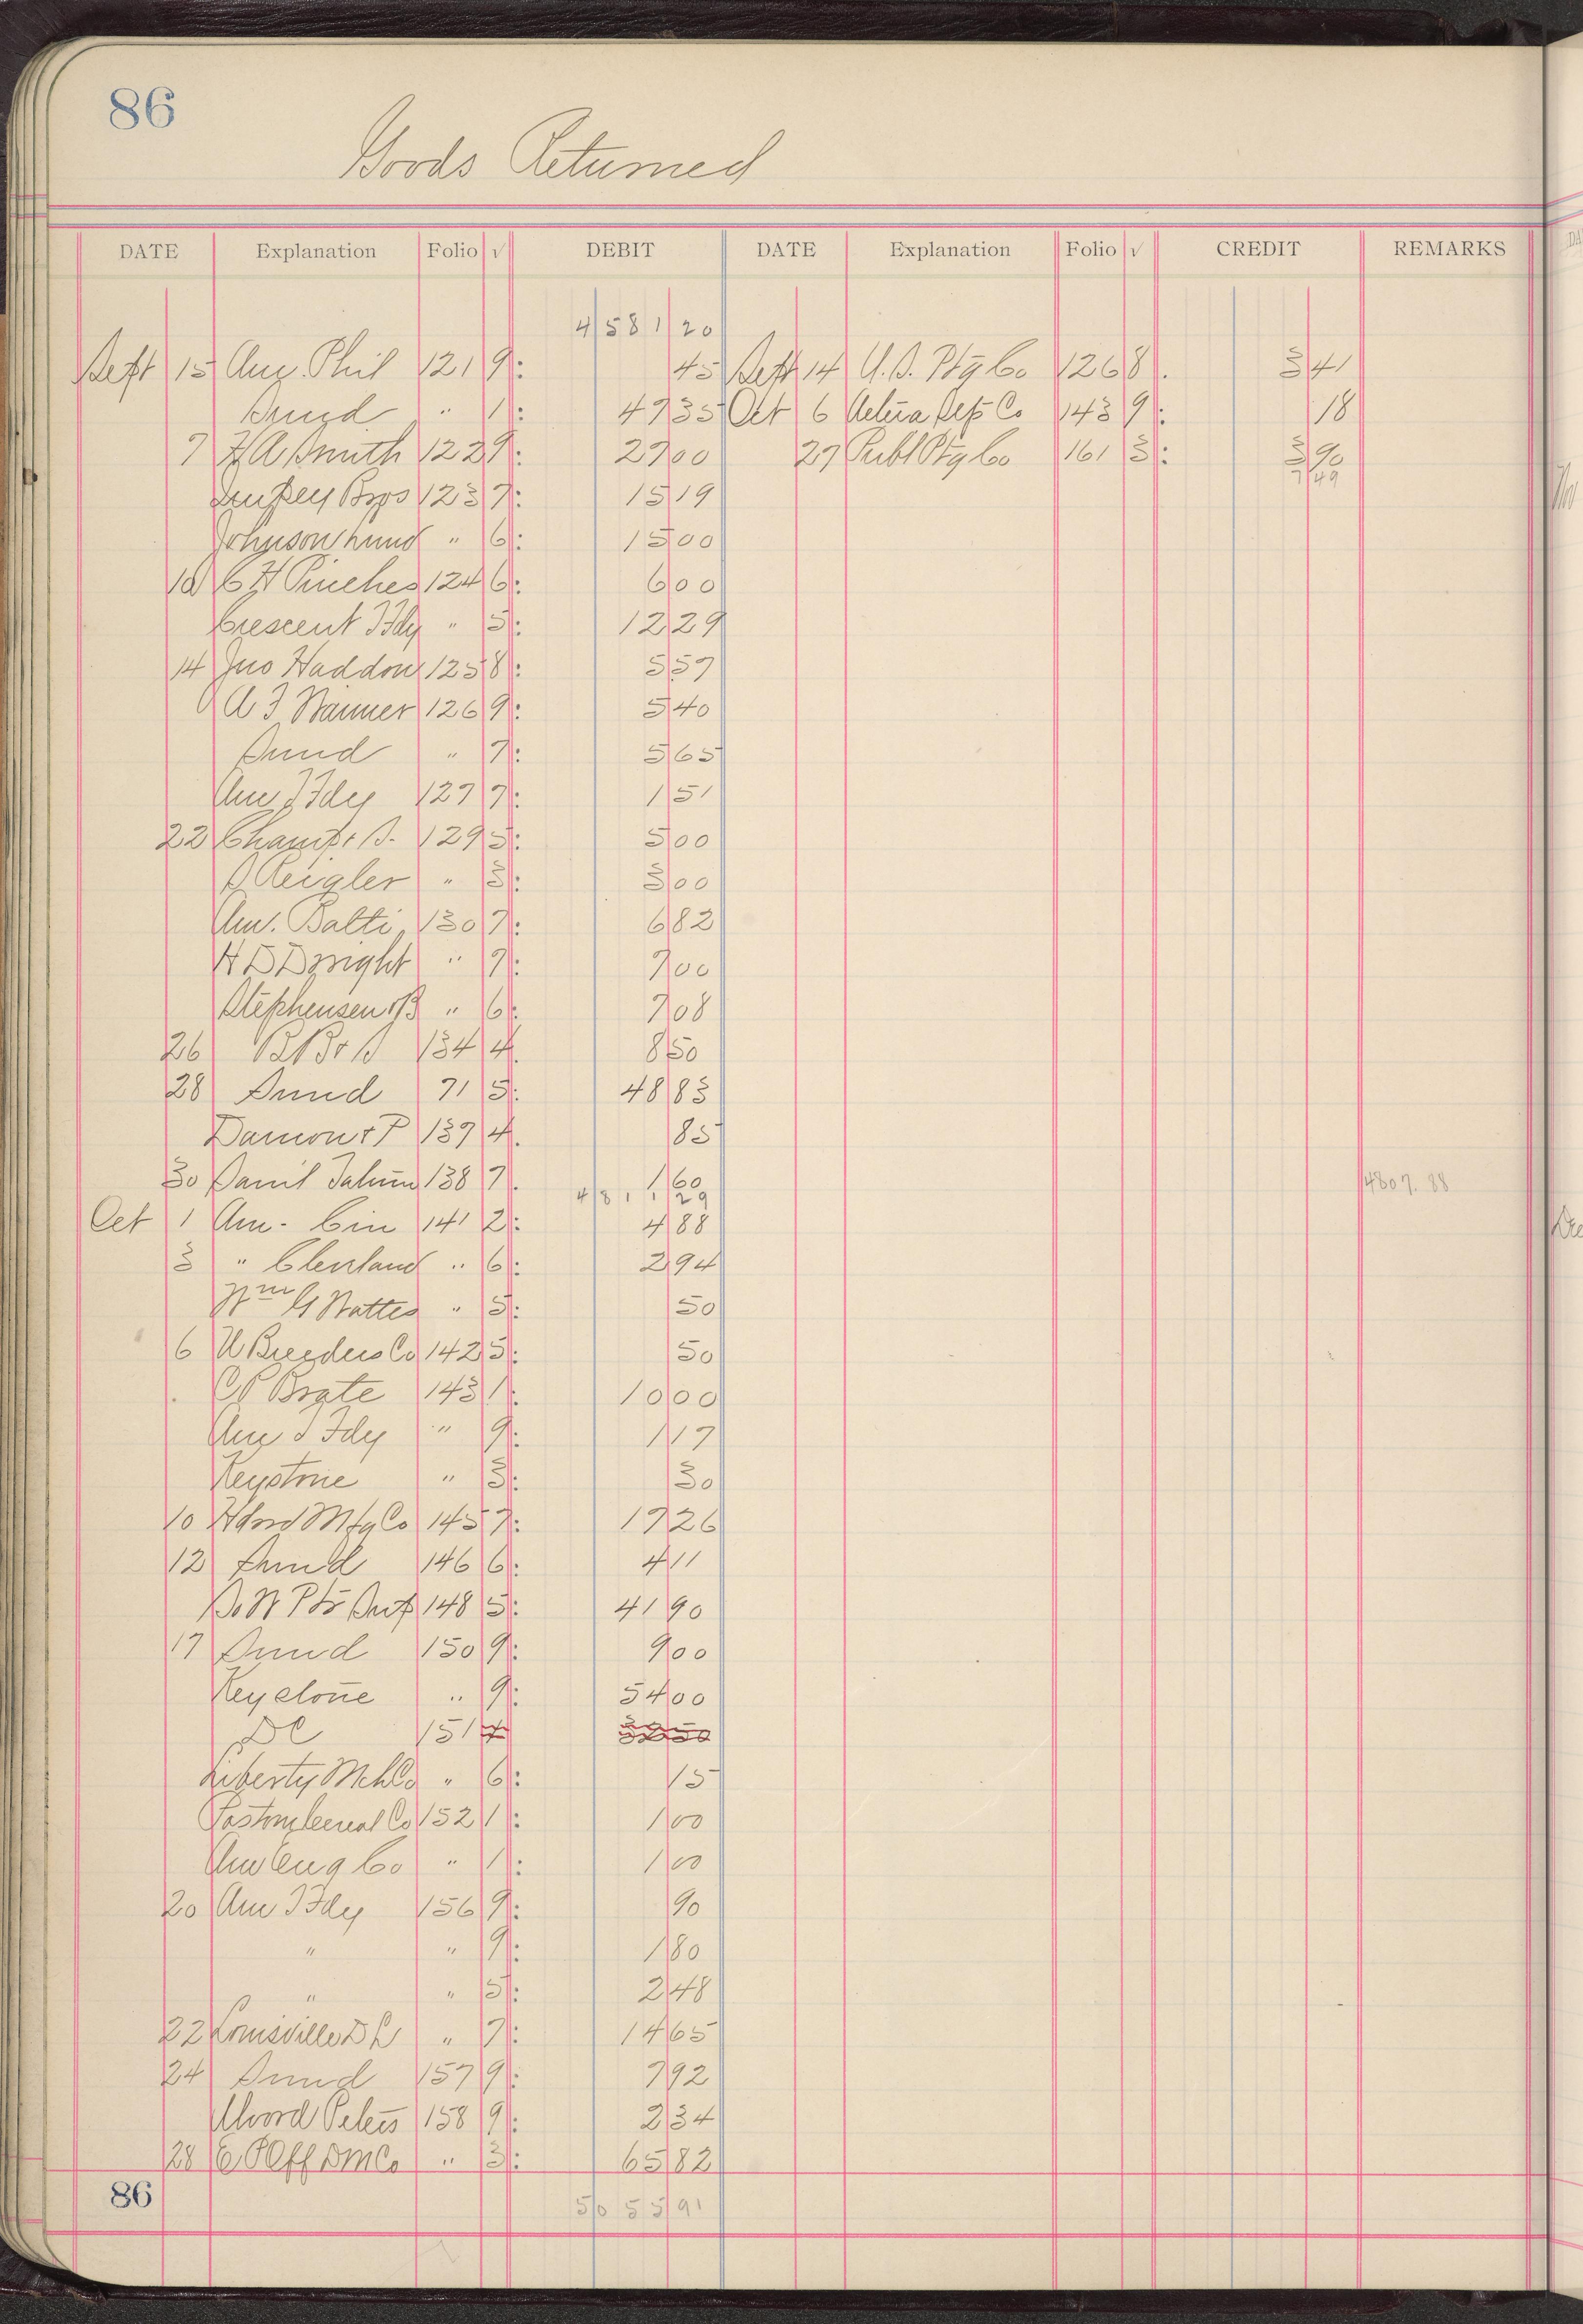 86
Goods Returned
DATE Explanation Folio √ DEBIT DATE Explanation Folio √ CREDIT REMARKS
4581 20
Sept 15 Am. Phil 121 9: 45 Sept 14 U.S. Ptg Co 126 8. 3 41
Sund " 1: 47 35 Oct 6 Aetna Co 143 9: 18
7 F A Smith 122 9: 27 00 27 Publ Ptg Co 161 3: 3 90
Bros 123 7: 15 19 7 49
Johnson Lund " 6: 15 00
10 C H Pinches 124 6: 6 00
Crescent T Fdy " 5: 12 29
14 Jno Haddon 125 8: 5 57
A F Wanner 126 9: 5 40
Sund " 7: 5 65
Am T Fdy 127 7: 1 51
22 Champ + S. 129 5: 5 00
Reigler " 3: 3 00
Am. Balti 130 7: 6 82
H D Dwight " 7: 7 00
Stephensen + B " 6: 7 08
26 B B + S 134 4. 8 50
28 Sund 71 5: 48 83
Damon + P 137 4. 85
30 Saml Tatum 138 7. 1 60 4807.88
4811 29
Oct 1 Am. Cin 141 2: 4 88
3 " Clevland " 6: 2 94
Wm G Wattes " 5: 50
6 U Breeders Co 142 5: 50
C P Brate 143 1: 10 00
Am T Fdy " 9: 1 17
Keystone " 3: 30
10 Mfg Co 145 7: 17 26
12 Sund 146 6: 4 11
So W Ptr Sup 148 5: 41 90
17 Sund 150 9: 9 00
Keystone " 9: 54 00
DC 151
Liberty Mch Co " 6: 15
Postum Cereal Co 152 1: 1 00
Am Eng Co " 1: 1 00
20 Am T Fdy 156 9: 90
" " 9: 1 80
" " 5: 2 48
22 Louisville " 7: 14 65
24 Sund 157 9: 7 92
Alvord Peters 158 9: 2 34
28 Co " 3: 65 82
86 5055 91